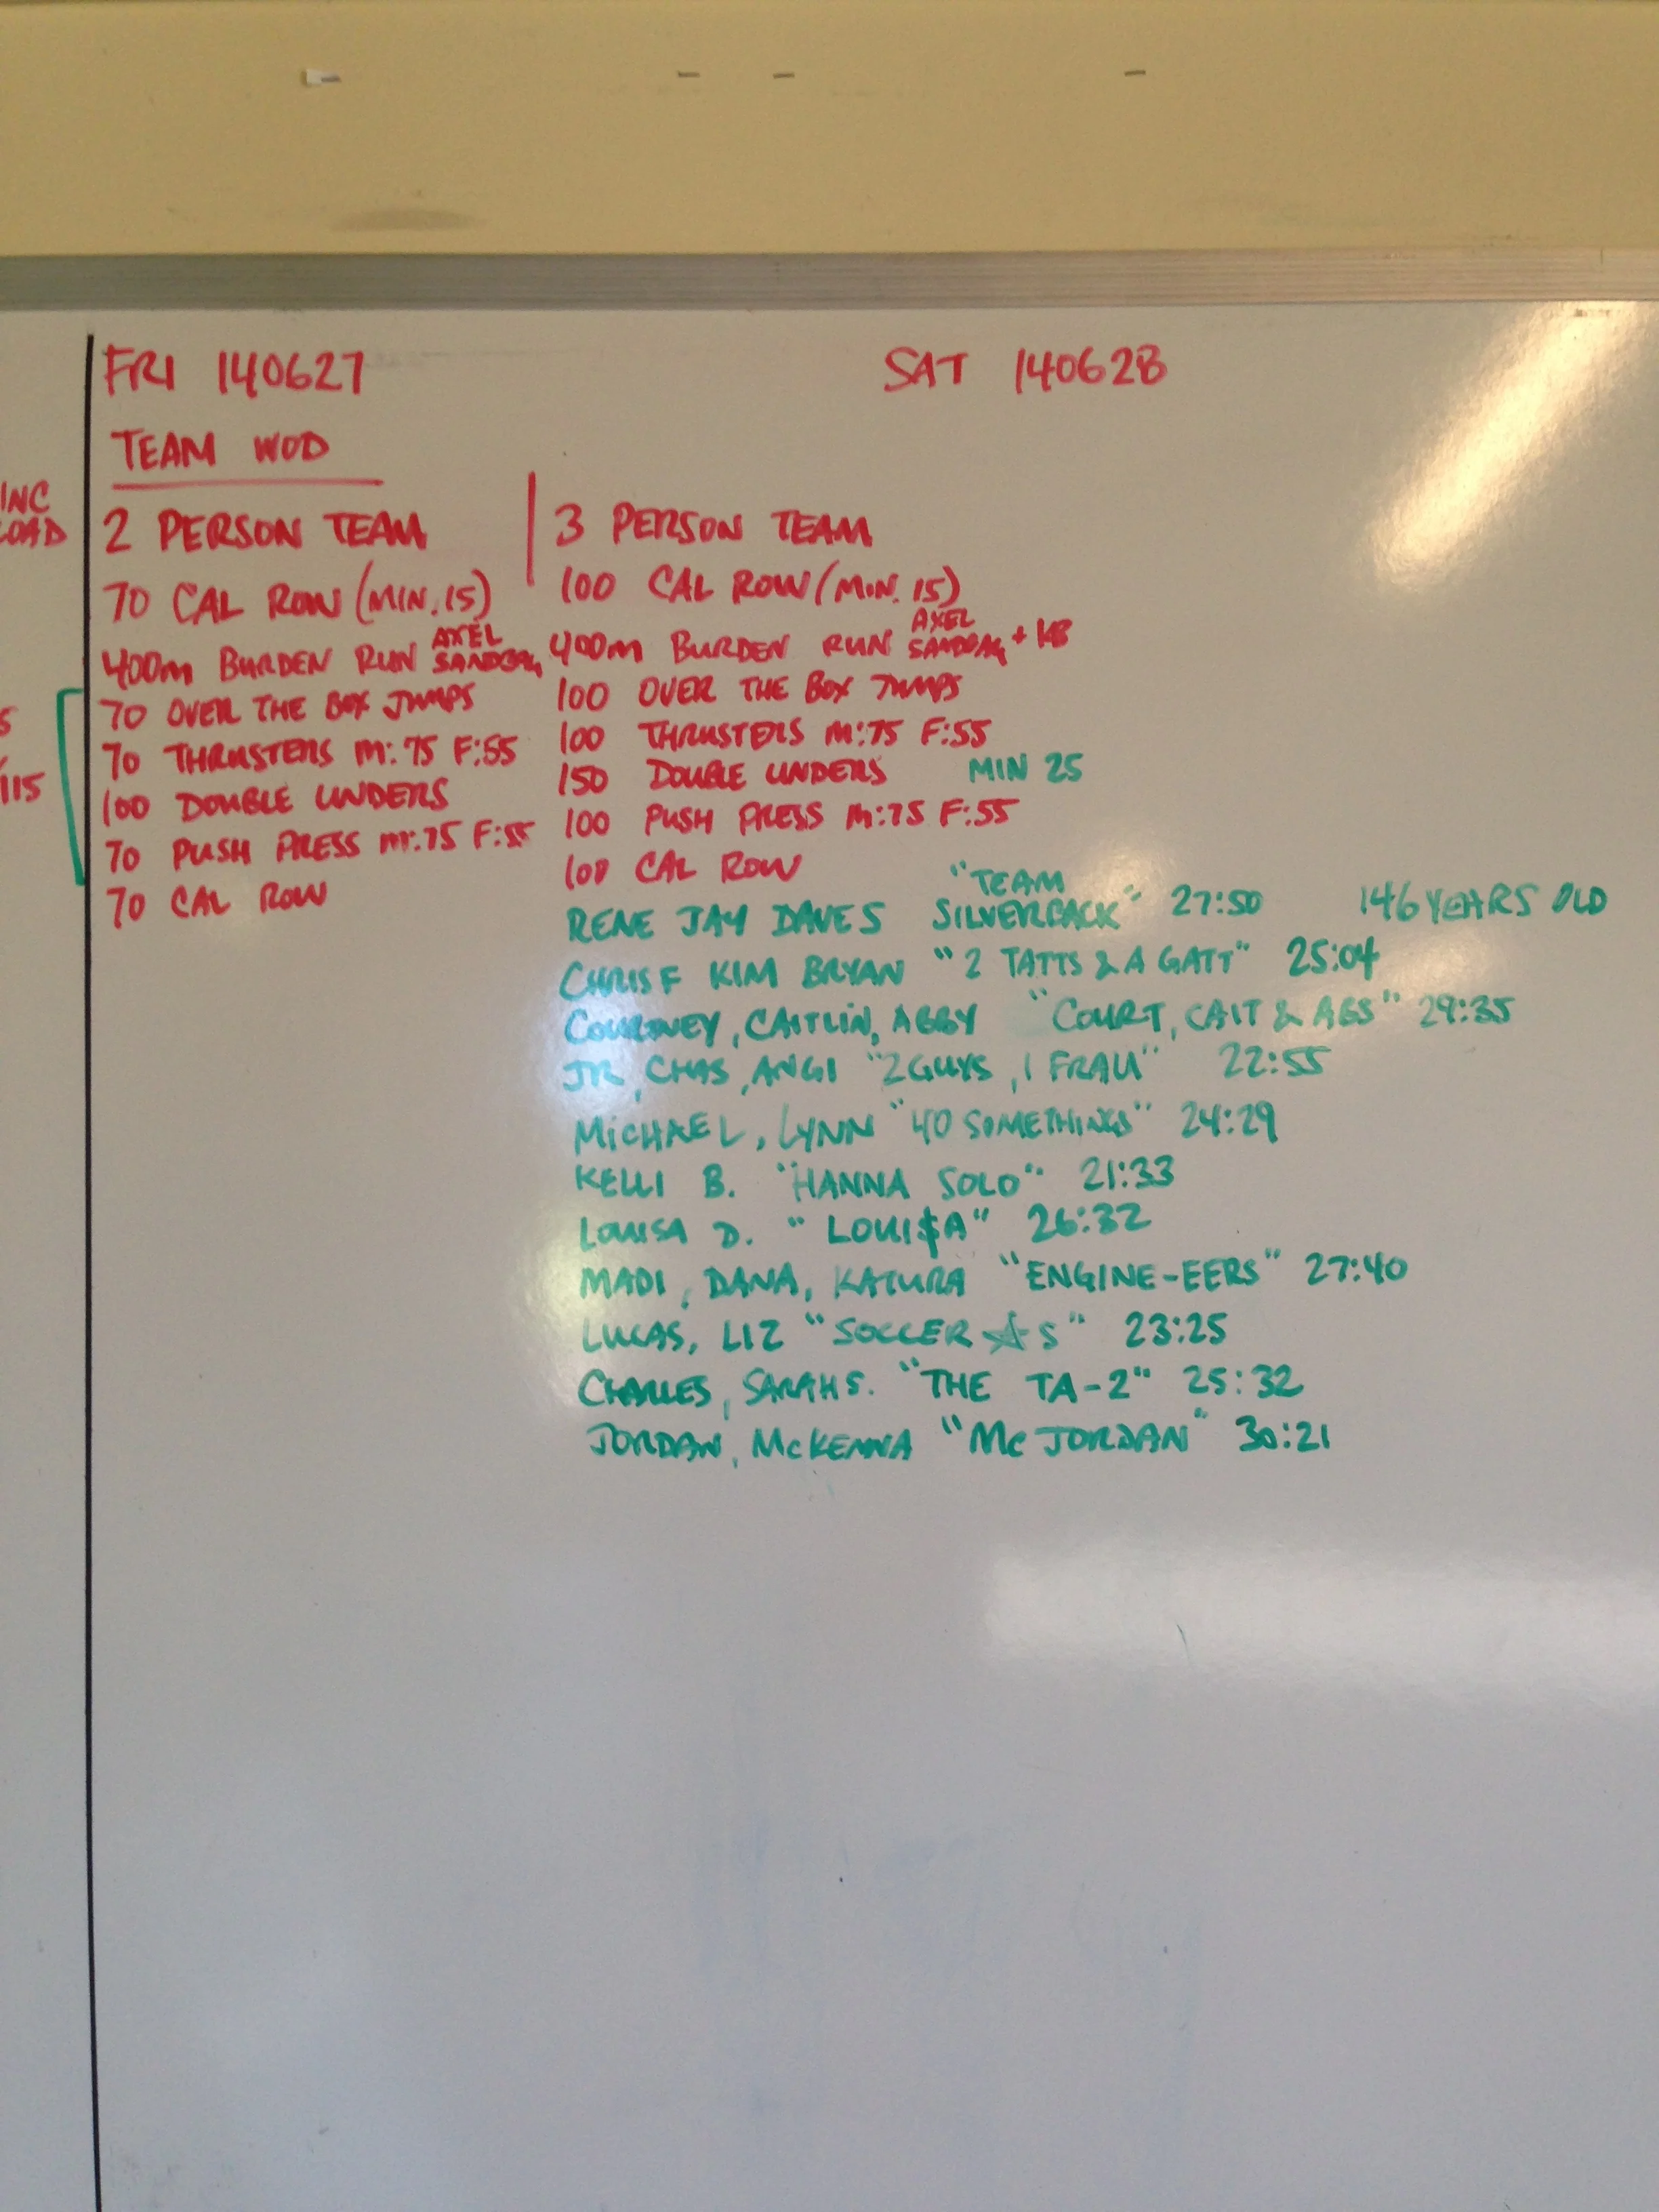 FRI 140627
SAT 140628
TEAM WOD
INC
LOAD
5
115
2 PERSON TEAM
70 CAL ROW (MIN. 15)
400m BURDEN RUN AXEL SANDBAG
70 OVER THE BOX JUMPS
70 THRUSTERS M: 75 F:55
100 DOUBLE UNDERS
70 PUSH PRESS M:75 F:55
70 CAL ROW
3 PERSON TEAM
100 CAL ROW (MIN. 15)
400m BURDEN RUN AXEL SANDBAG + KB
100 OVER THE BOX JUMPS
100 THRUSTERS M:75 F:55
150 DOUBLE UNDERS MIN 25
100 PUSH PRESS M:75 F:55
100 CAL ROW
RENE JAY DAVE S "TEAM SILVERBACK" 27:50 146 YEARS OLD
CHRIS F KIM BRYAN "2 TATTS & A GATT" 25:04
COURTNEY, CAITLIN, ABBY "COURT, CAIT & ABS" 29:35
JR, CHAS, ANGI "2 GUYS, 1 FRAU" 22:55
MICHAEL, LYNN "40 SOMETHINGS" 24:29
KELLI B. "HANNA SOLO" 21:33
LOUISA D. "LOUI$A" 26:32
MADI, DANA, KATURA "ENGINE-EERS" 27:40
LUCAS, LIZ "SOCCER ☆S" 23:25
CHARLES, SARAH S. "THE TA-2" 25:32
JORDAN, MCKENNA "MC JORDAN" 30:21